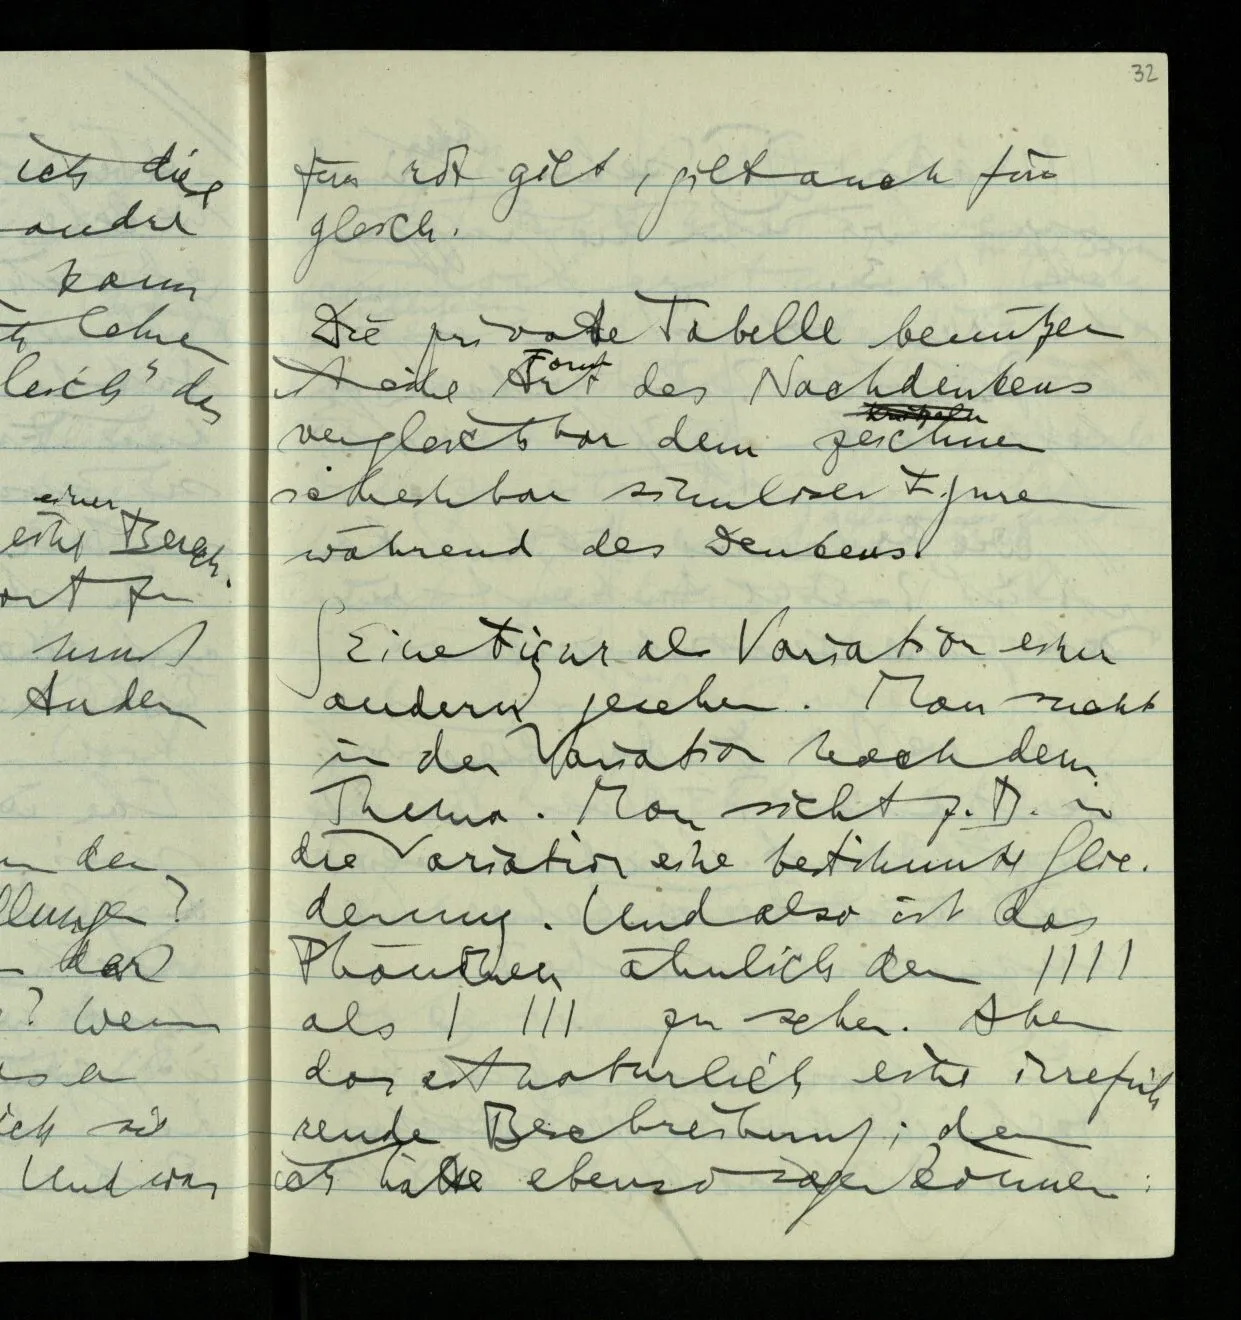 ich die
andre
kann
lehren
gleich" das
einer
eine Berech.
ort zu
und
Andern
in den
llungen?
das
? Wenn
ich sie
Und was
32
für rot gilt, gilt auch für
gleich.
Die private Tabelle benützen
ist eine Art Form des Nachdenkens
kritzeln
vergleichbar dem zeichnen
scheinbar sinnloser Figuren
während des Denkens.
∫ Eine Figur als Variation einer
andern gesehen. Man sucht
in der Variation nach dem
Thema. Man sieht z.B. in
die Variation eine bestimmte Glie-
derung. Und also ist das
Phänomen ähnlich dem ||||
als | ||| zu sehen. Aber
das ist natürlich eine irrefüh
rende Beschreibung; denn
ich hätte ebenso sagen können: